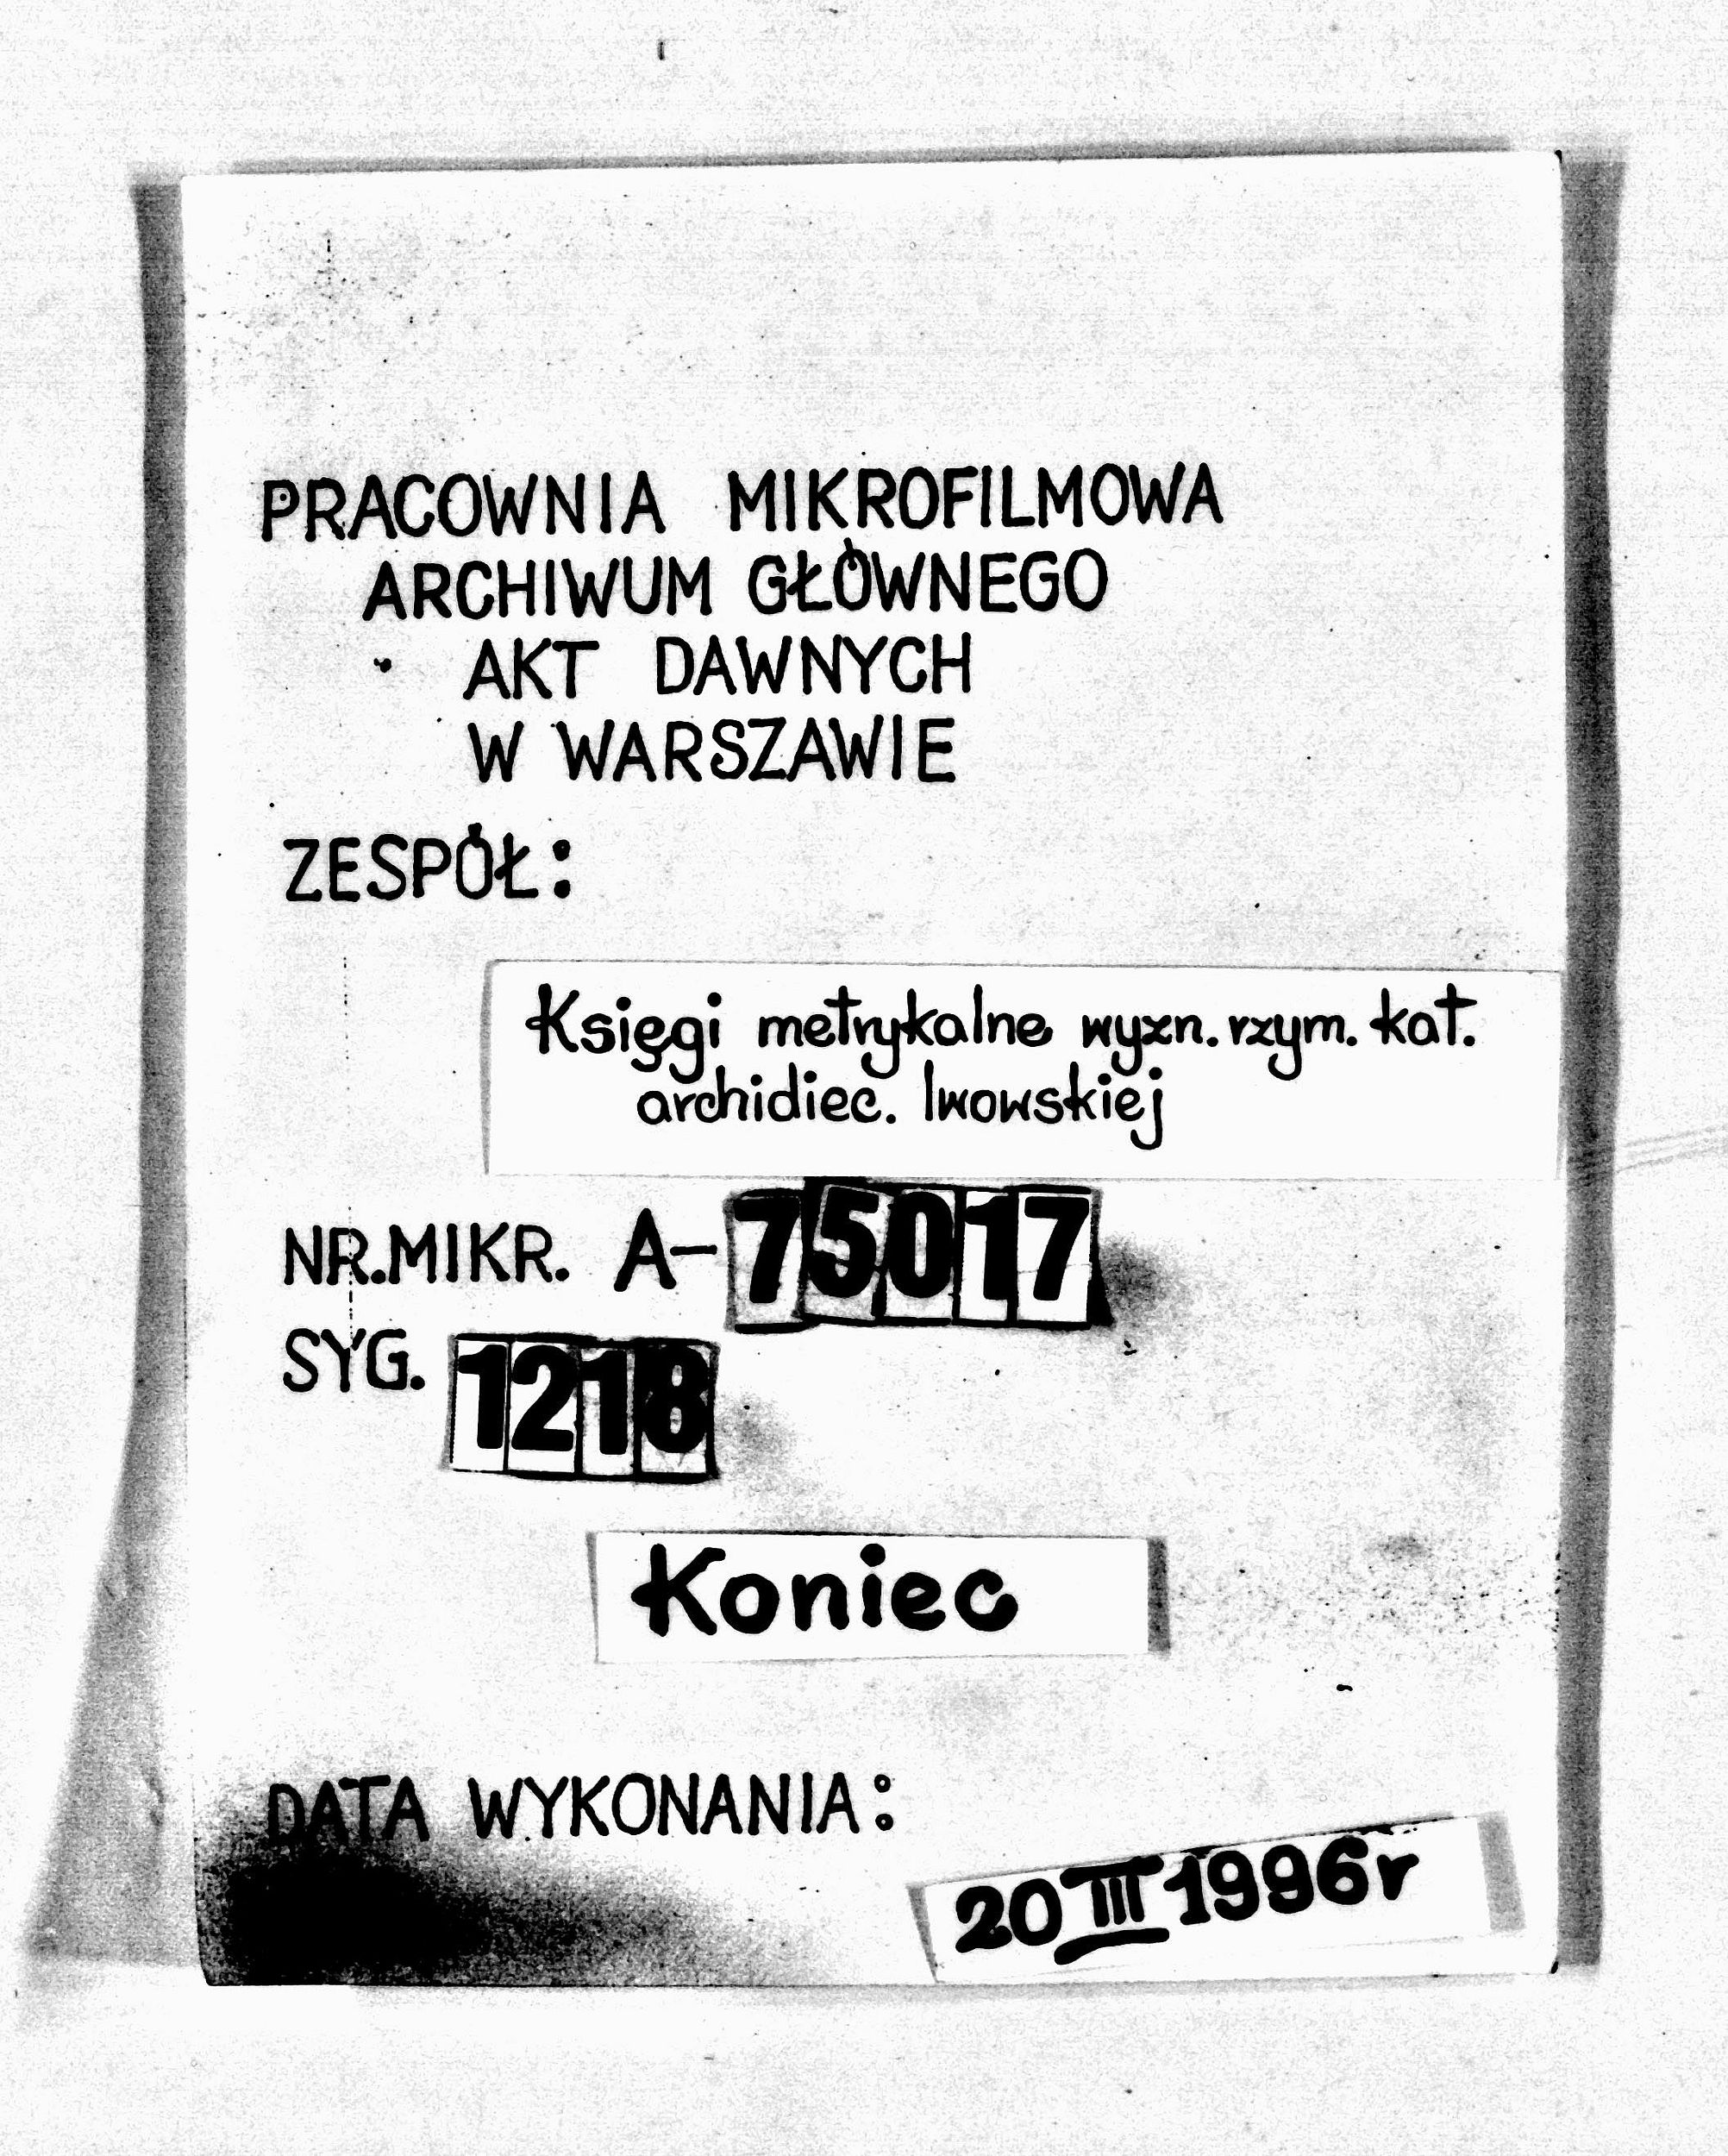 PRACOWNIA MIKROFILMOWA
ARCHIWUM GŁÓWNEGO
AKT DAWNYCH
W WARSZAWIE
ZESPÓŁ:
Księgi metrykalne wyzn. rzym. kat.
archidiec. lwowskiej
NR.MIKR. A-75017
SYG. 1218
Koniec
DATA WYKONANIA:
20 III 1996r